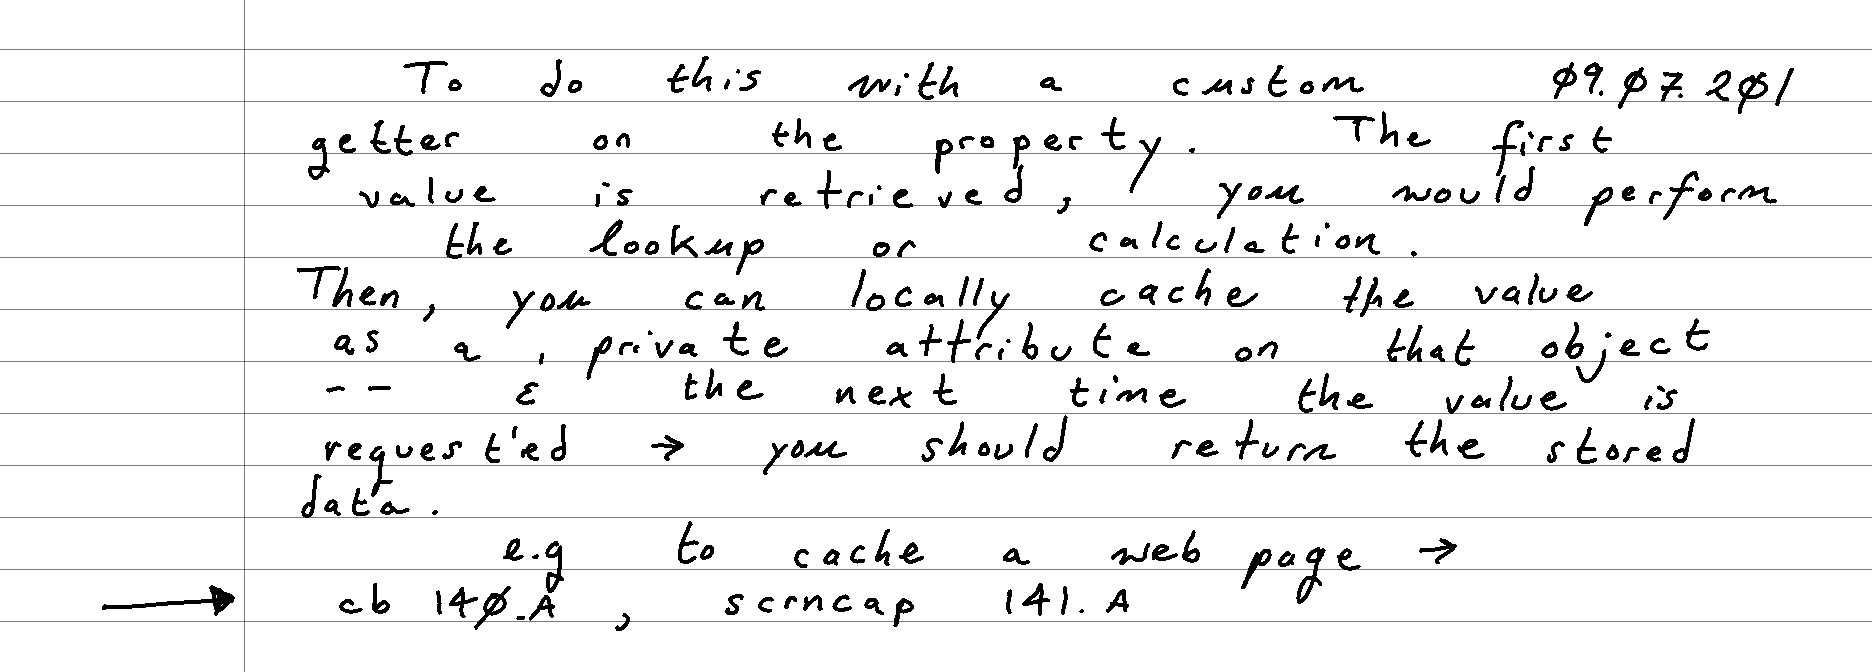 To do this with a custom 09.07.201
getter on the property. The first
value is retrieved, you would perform
the lookup or calculation.
Then, you can locally cache the value
as a , private attribute on that object
-- & the next time the value is
request'ed → you should return the stored
data.
e.g to cache a web page →
→ cb 140.A , scrncap 141. A